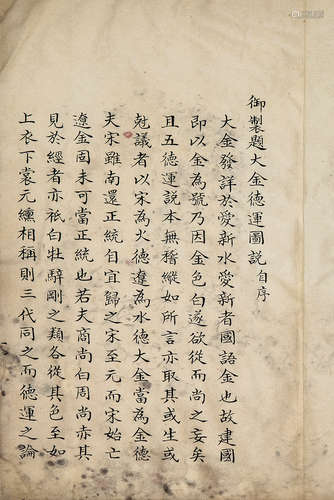 御製題大金德運圖說自序
大金發詳於愛新水愛新者國語金也故建國
即以金為號乃因金色白遂欲從而尚之妄矣
且五德運說本無稽縱如所言亦取其或生或
尅議者以宋為火德遼為水德大金當為金德
夫宋雖南遷正統自宜歸之宋至元而宋始亡
遼金固未可當正統也若夫商尚白周尚赤其
見於經者亦祇白牡騂剛之類各從其色至如
上衣下裳元纁相稱則三代同之而德運之論